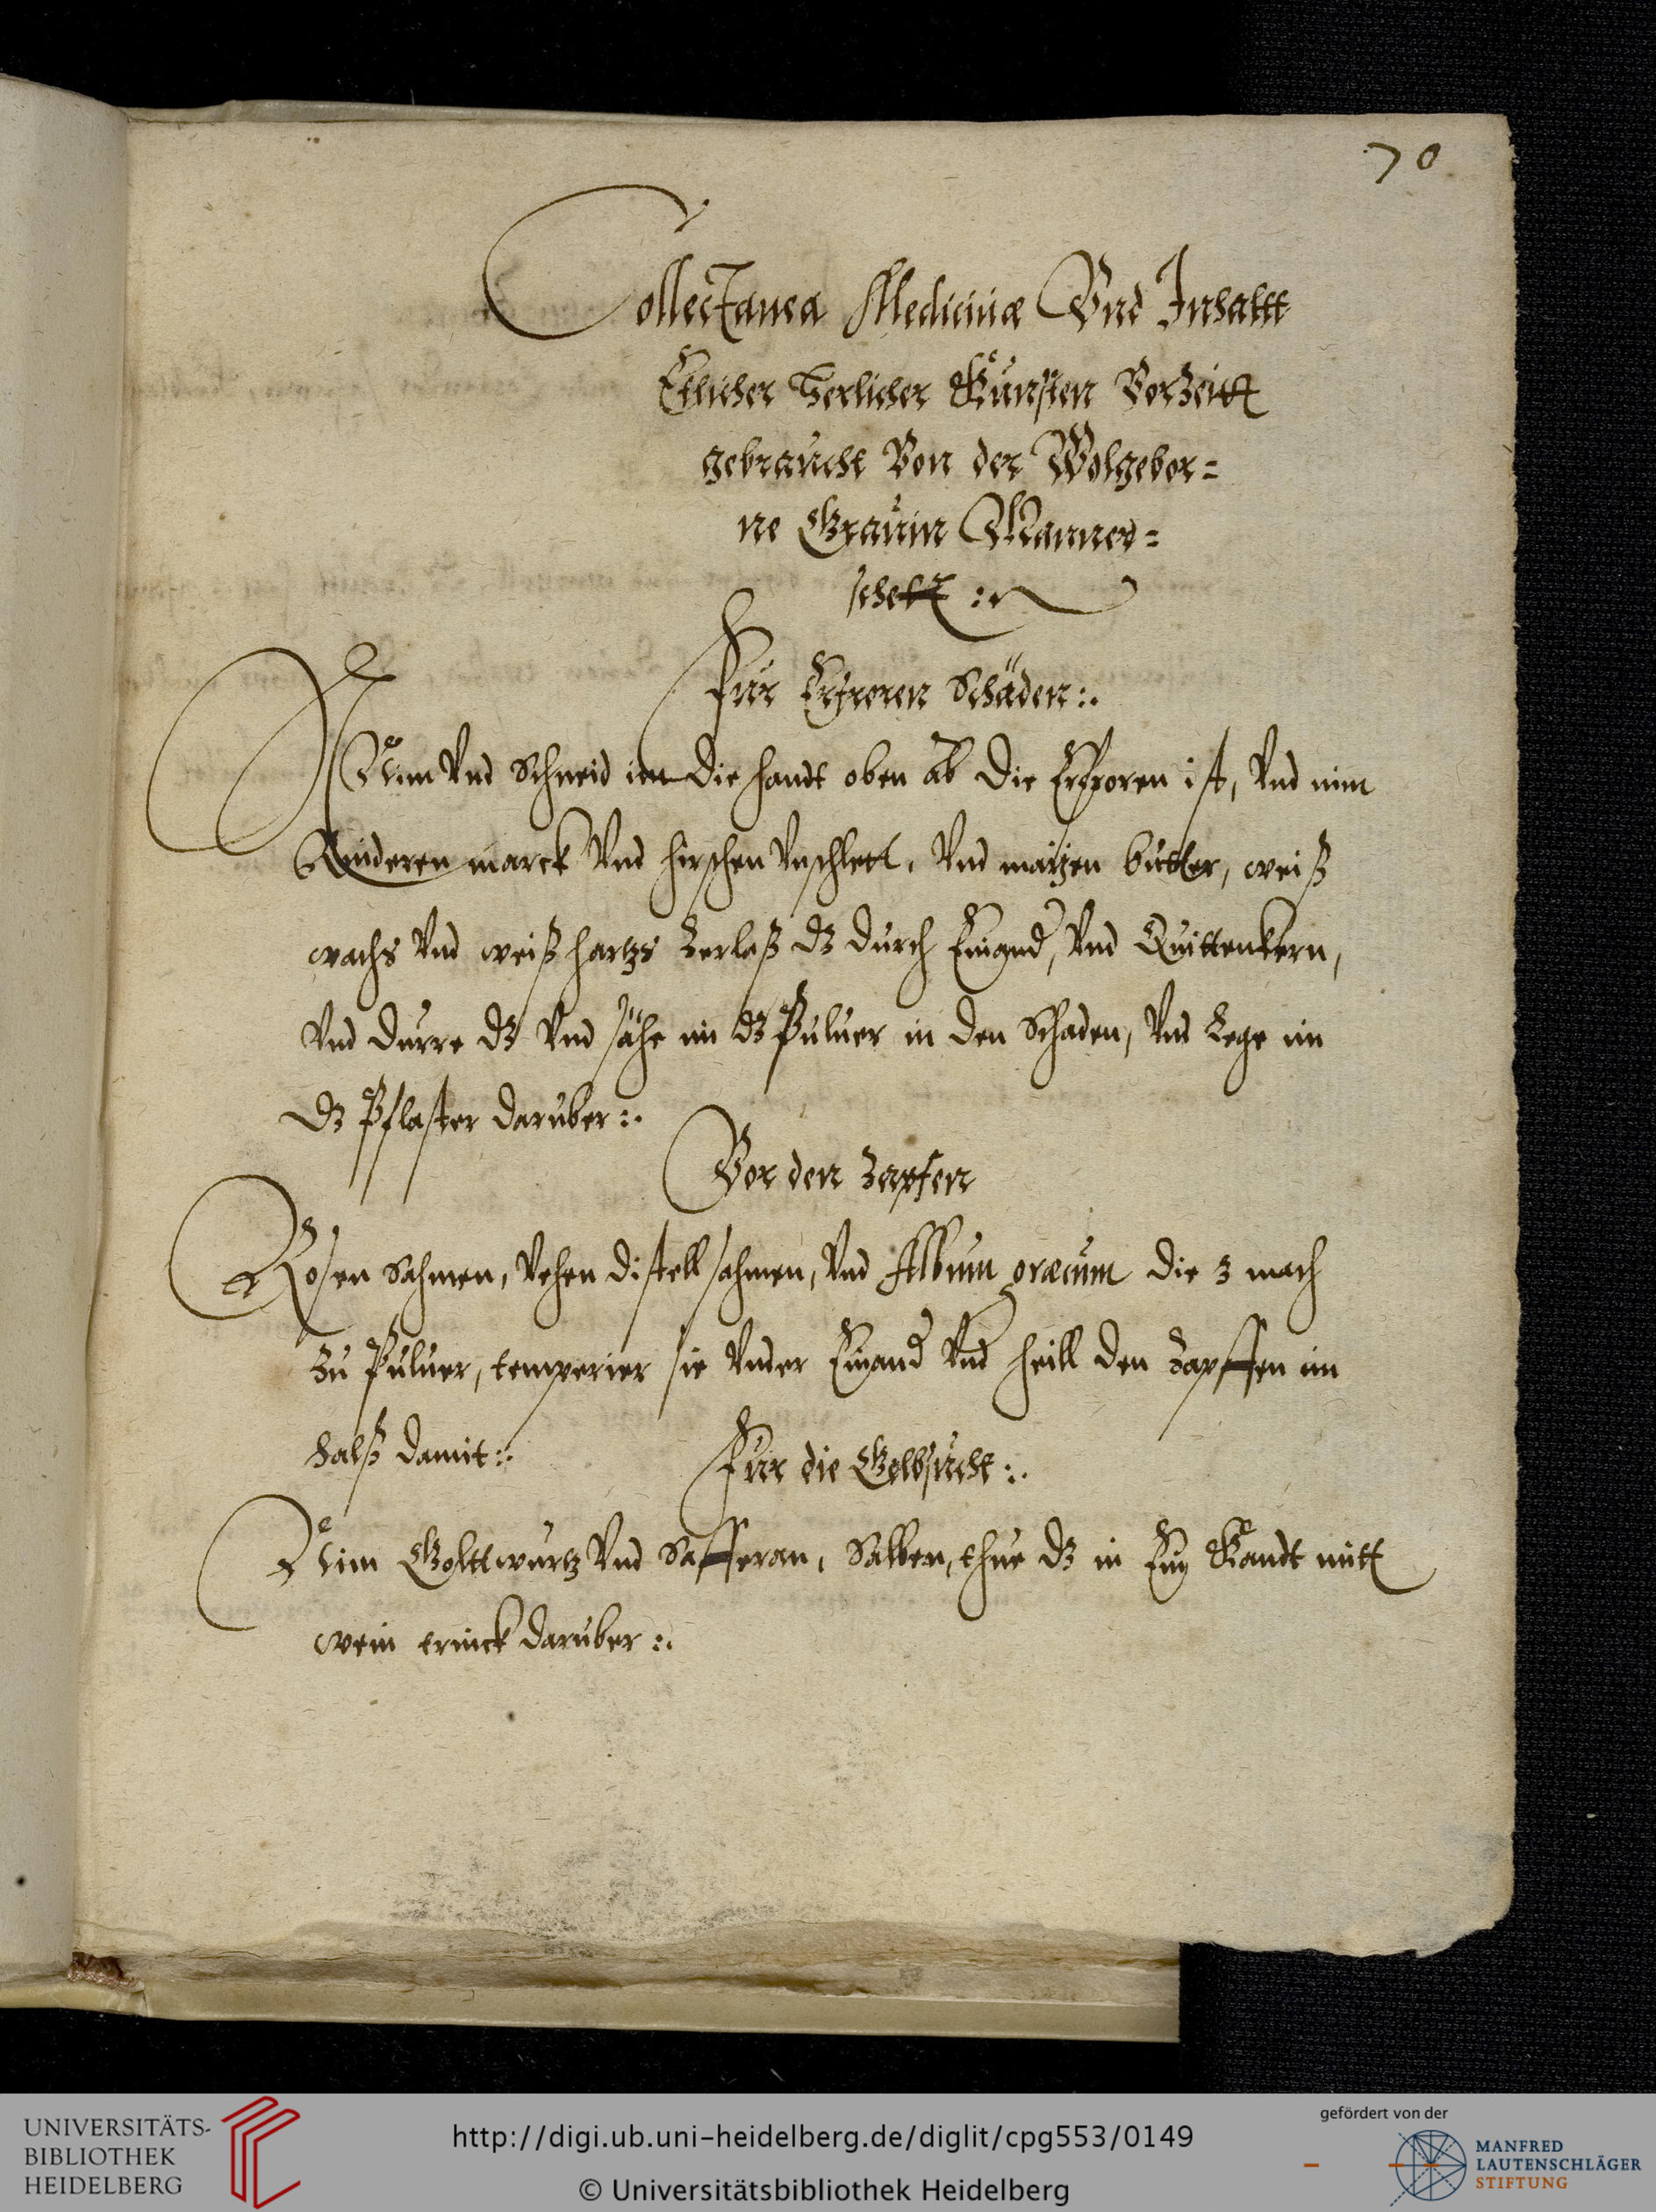 70
Collectanea Medicinæ Vnd Inhaltt
Etlicher Herlicher Künsten Vorzeitt
gebraucht Von der Wolgebor=
ne Gräuin Manner=
schett :
Für Erfroren Schäden :.
Nim Vnd Schneid im die handt oben ab die Erfroren ist, Vnd nim
Rinderen marck Vnd hirschen Vnschlett, Vnd maÿen butter, weiß
wachs Vnd weiß hartzs Zerlaß dz durch Einand, Vnd Quittenkern,
Vnd durre dz Vnd sähe im dz Puluer in den Schaden, Vnd Lege im
dz Pflaster daruber :.
Vor den Zapfen
Rosen Sahmen, Vehen distell sahmen, Vnd Album græcum die 3 mach
Zu Puluer, temperier sie Vnder Einand Vnd heill den Zapffen im
halß damit :.
Für die Gelbsucht :.
Nim Goltt wurtz Vnd Safferan, Salben, thue dz in Ein Kandt mitt
wein trinck daruber :.
UNIVERSITÄTS-
BIBLIOTHEK
HEIDELBERG
http://digi.ub.uni-heidelberg.de/diglit/cpg553/0149
© Universitätsbibliothek Heidelberg
gefördert von der
MANFRED
LAUTENSCHLÄGER
STIFTUNG